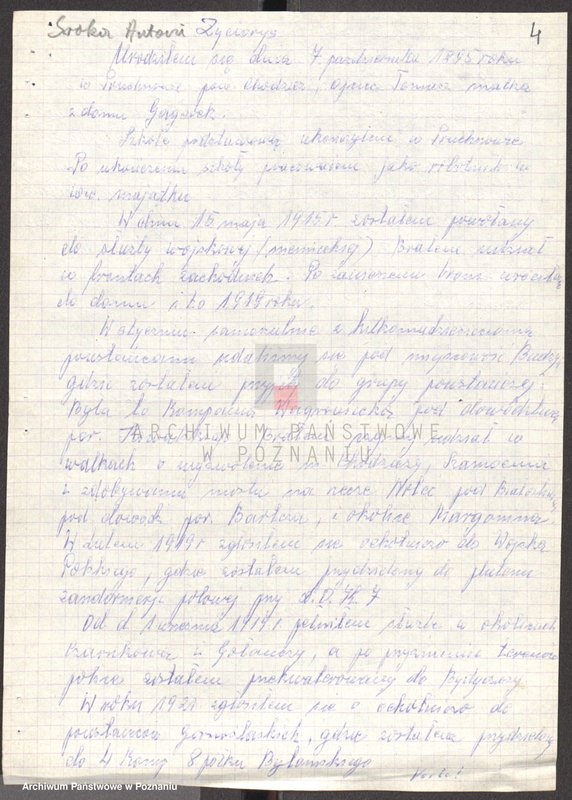 Sroka Antoni Życiorys
4
Urodziłem się dnia 7 października 1895 roku
w pow. Chodzież, ojciec Tomasz matka
z domu
Szkołę podstawową ukończyłem w
Po ukończeniu szkoły pracowałem jako robotnik w
majątku
W dniu 15 maja 1915 r zostałem powołany
do służby wojskowej (niemieckiej) Brałem udział
w frontach zachodnich. Po zawieszeniu broni
do domu 1919 roku.
W styczniu samorzutnie z
powstańcami udaliśmy się pod miejscowość
gdzie zostałem do grupy powstańczej
Była to Kompania Wągrowiecka pod dowództwem
por. Brałem udział w
walkach o wyzwolenie m. Chodzieży, Szamocina
z zdobywaniu mostu na rzece Noteć pod
pod dowódz. por. Bartsza, i okolice Margonina
W lutym 1919 r zgłosiłem się ochotniczo do Wojska
Polskiego, gdzie zostałem przydzielony do plutonu
żandarmerji polowej przy D.O.K. 7
Od d. 1 1919 r. pełniłem służbę w okolicach
Czarnkowa i Gołańczy, a po
zostałem przekwaterowany do Bydgoszczy
W roku 1921 zgłosiłem się ochotniczo do
powstańców górnośląskich, gdzie zostałem przydzielony
do 4 Komp 8 pułku Bytomskiego
ARCHIWUM PAŃSTWOWE
W POZNANIU
Archiwum Państwowe w Poznaniu